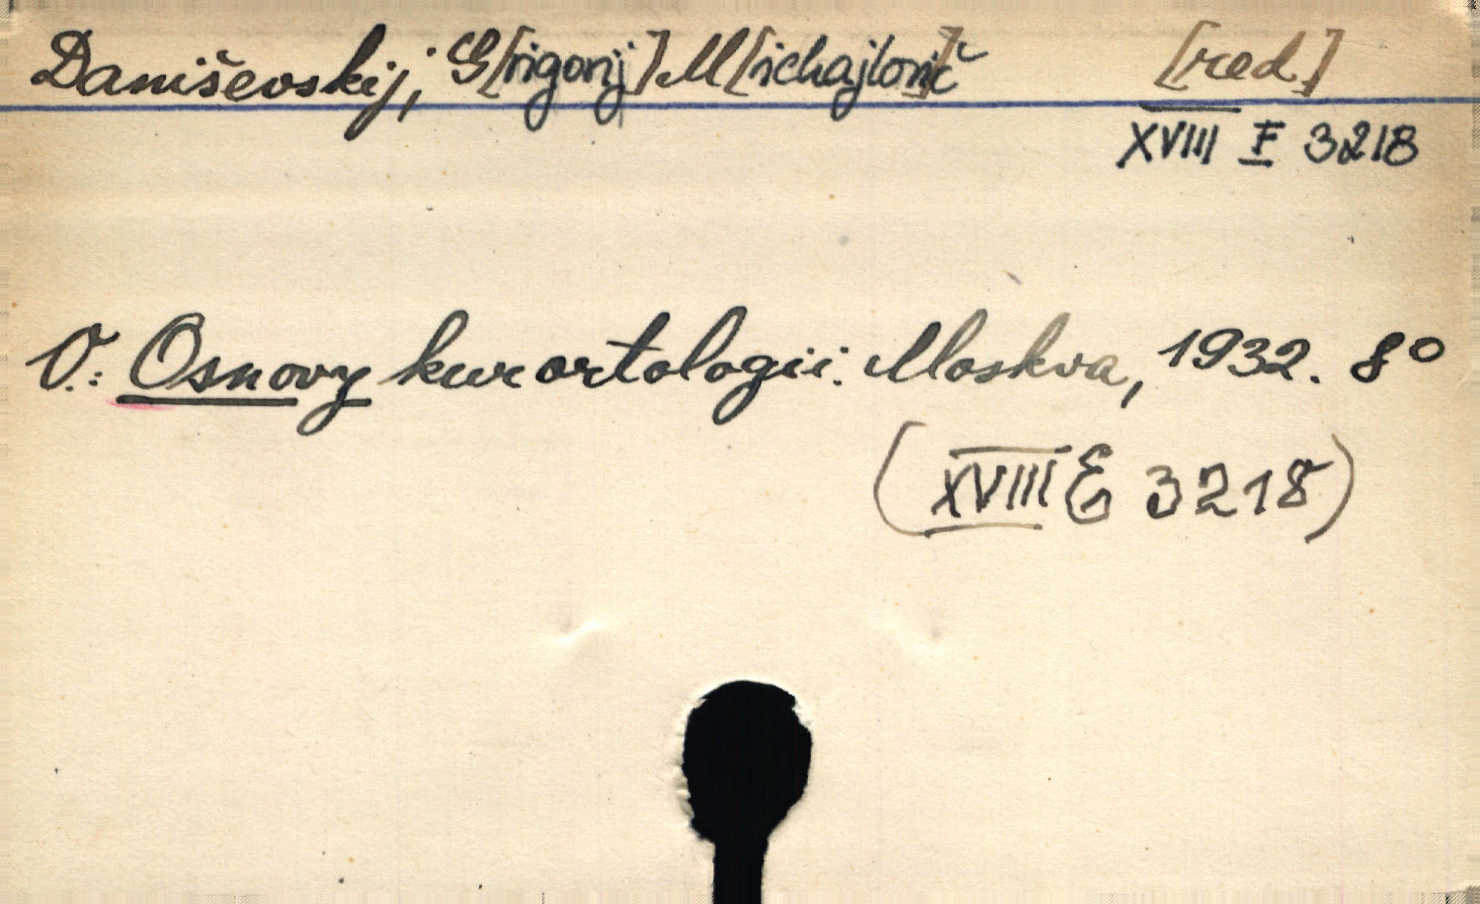 Daniševskij, G[rigorij] M[ichajlovič] [red.]
XVIII F 3218
V.: Osnovy kurortologii. Moskva, 1932. 8°
(XVIII E 3218)